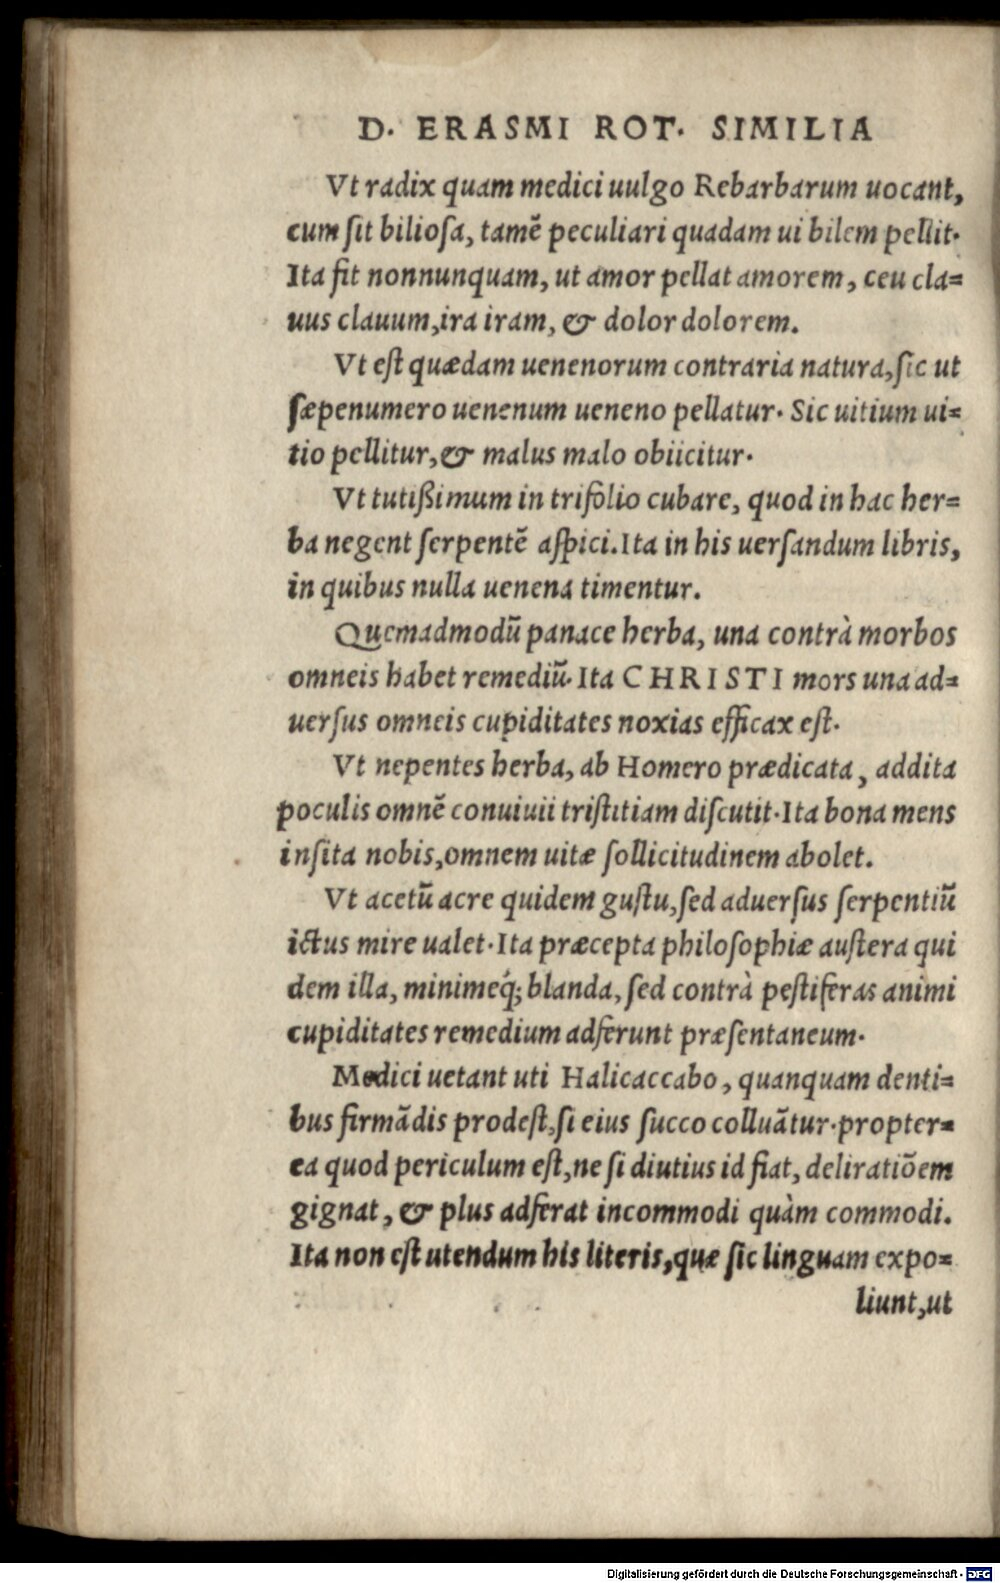 D. ERASMI ROT. SIMILIA
Vt radix quam medici uulgo Rebarbarum uocant,
cum ſit bilioſa, tamẽ peculiari quadam ui bilem pellit.
Ita fit nonnunquam, ut amor pellat amorem, ceu cla=
uus clauum, ira iram, & dolor dolorem.
Vt eſt quædam uenenorum contraria natura, ſic ut
ſæpenumero uenenum ueneno pellatur. Sic uitium ui=
tio pellitur, & malus malo obiicitur.
Vt tutißimum in trifolio cubare, quod in hac her=
ba negent ſerpentẽ aſpici. Ita in his uerſandum libris,
in quibus nulla uenena timentur.
Quemadmodũ panace herba, una contrà morbos
omneis habet remediũ. Ita CHRISTI mors una ad=
uerſus omneis cupiditates noxias efficax eſt.
Vt nepentes herba, ab Homero prædicata, addita
poculis omnẽ conuiuii triſtitiam diſcutit. Ita bona mens
inſita nobis, omnem uitæ ſollicitudinem abolet.
Vt acetũ acre quidem guſtu, ſed aduerſus ſerpentiũ
ictus mire ualet. Ita præcepta philoſophiæ auſtera qui
dem illa, minimeq́; blanda, ſed contrà peſtiferas animi
cupiditates remedium adferunt præſentaneum.
Medici uetant uti Halicaccabo, quanquam denti=
bus firmãdis prodeſt, ſi eius ſucco colluãtur. propter=
ea quod periculum eſt, ne ſi diutius id fiat, deliratiõem
gignat, & plus adferat incommodi quàm commodi.
Ita non eſt utendum his literis, quæ ſic linguam expo=
liunt, ut
Digitalisierung gefördert durch die Deutsche Forschungsgemeinschaft - DFG